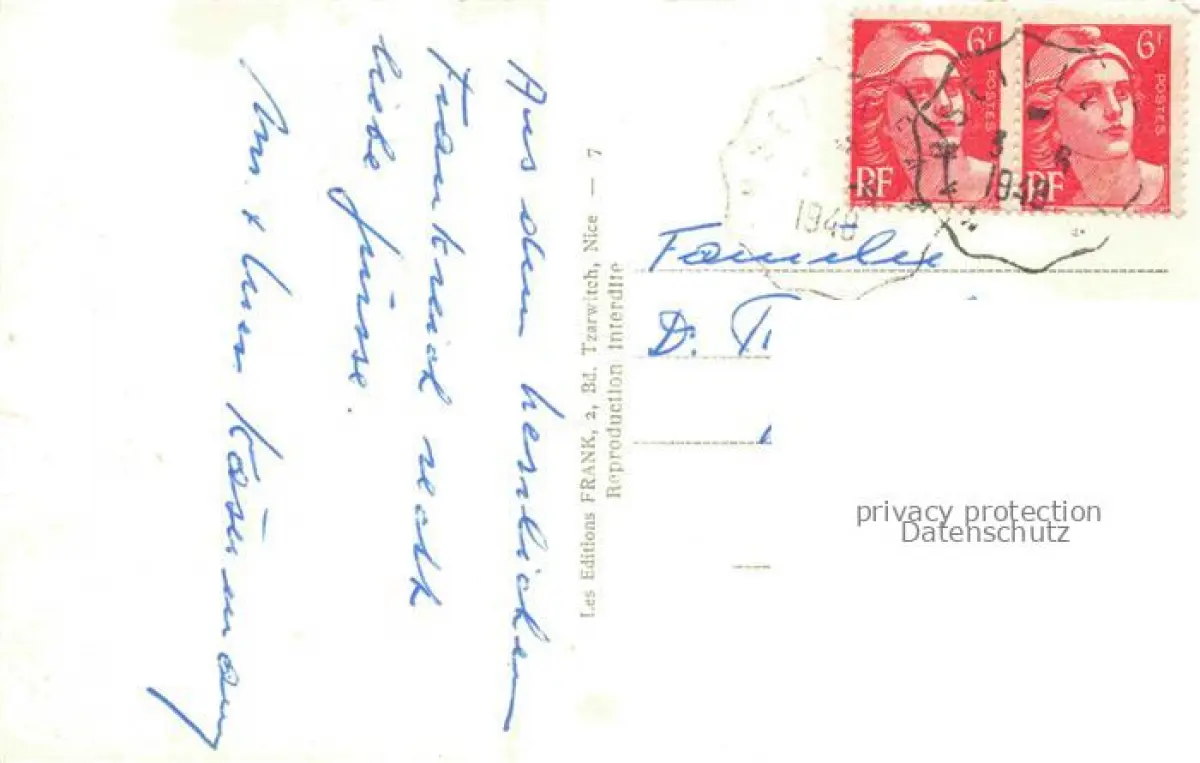 Aus dem herrlichen
Frankreich recht
liebe Grüsse.
Les Editions FRANK, 2, Bd. Tzarwitch, Nice — 7
Reproduction Interdite
6F
POSTES
RF
6F
POSTES
RF
1948
1948
Familie
D.
privacy protection
Datenschutz